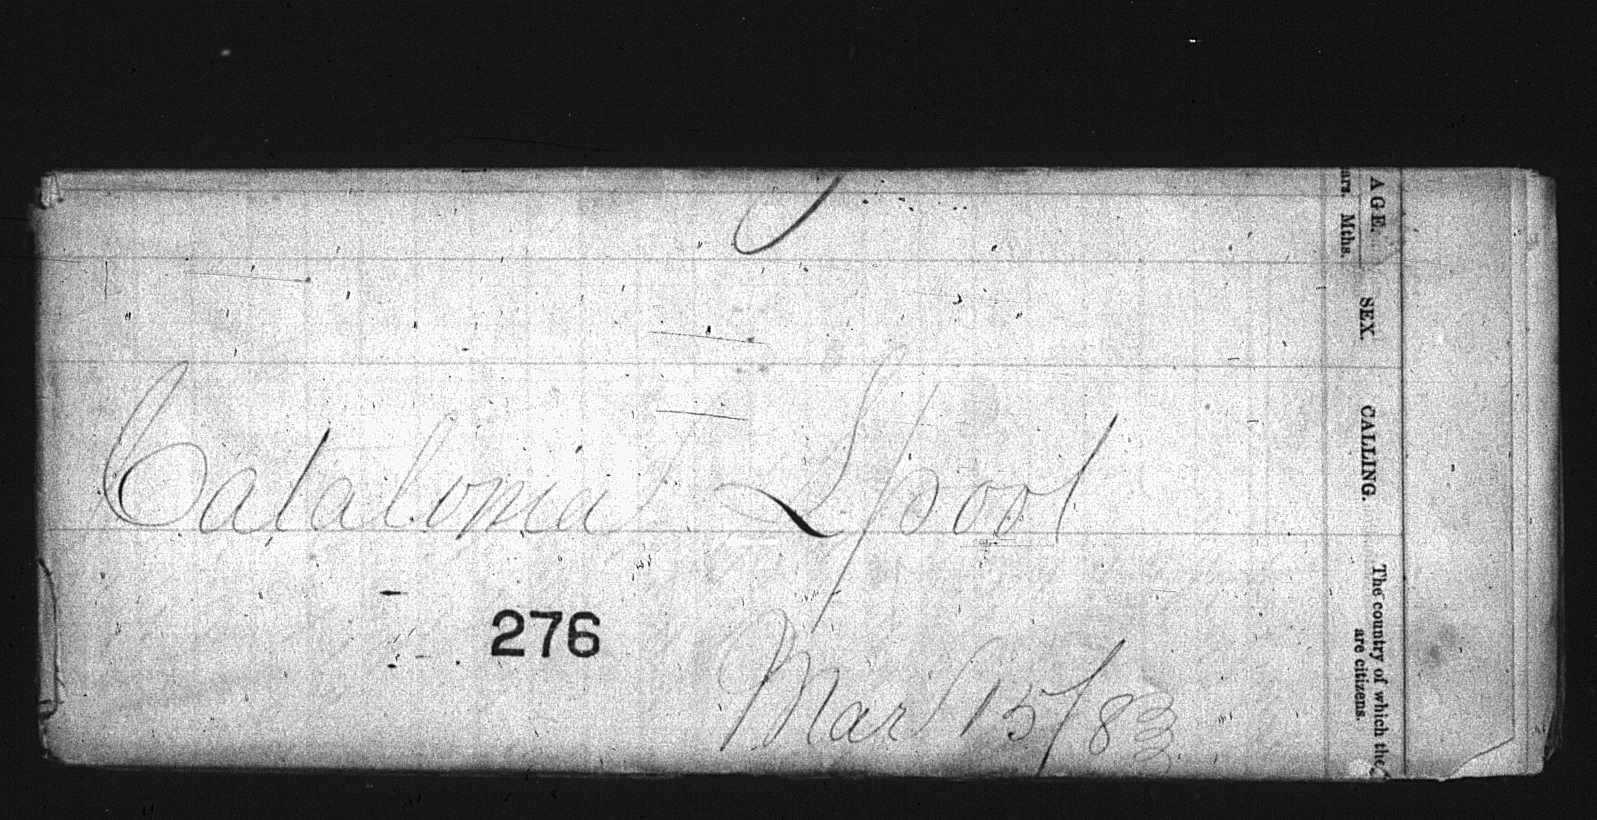 Catalonia L'pool
276
Mar 15/83
AGE.
ars. Mths.
SEX.
CALLING.
The country of which the
are citizens.